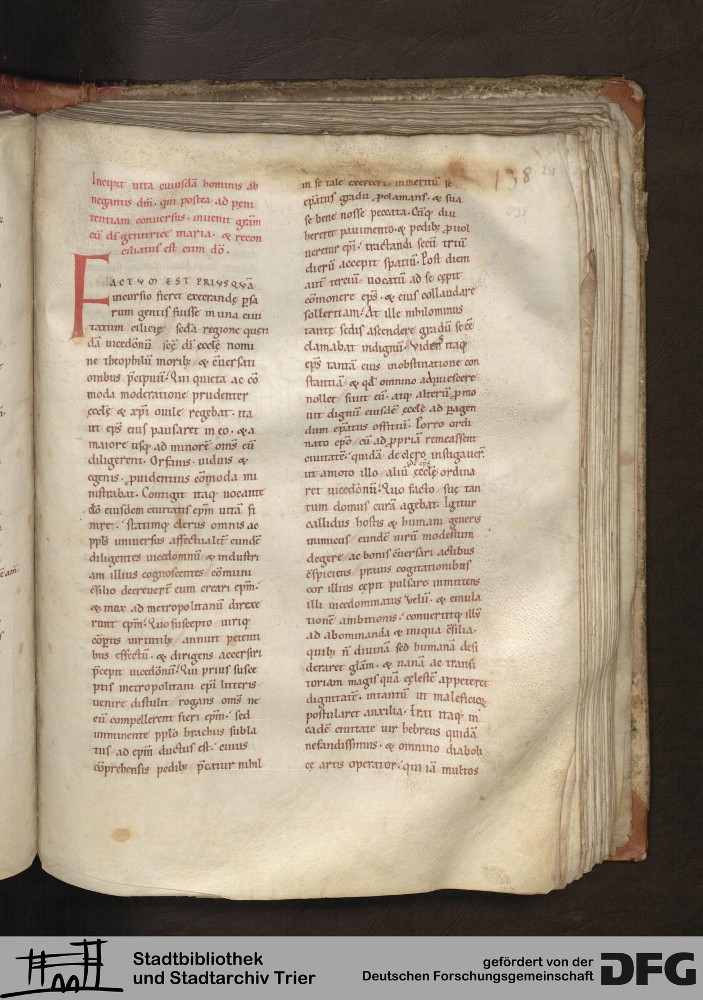 Incipit uita cuiusdā hominis ab
negantis dn̄m. qui postea ad peni
tentiam conuersus. inuenit grām
eū di genitrice maria. & recon
ciliatus est cum dō.
FACTVM EST PRIVSQVĀ
incursio fieret execrandę ꝑsa
rum gentis fuisse in una ciui
tatum cilicię sedā regione quen
dā uicedōnū scę di ęcclę nomi
ne theophilū morib; & cūersati
onibus p̄cipuū. Qui quieta ac cō
moda moderatione prudenter
ęcclę & xp̄i ouile regebat. ita
ut ep̄s eius pausaret in eo. & a
maiore usq; ad minorē oms̄ eū
diligerent. Orfanis. uiduis &
egenis. ꝓuidentius cōmoda mi
nistrabat. Contigit itaq; uocante
dō eiusdem ciuitatis ep̄m uitā fi
nire. statimq; clerus omnis ac
ppls̄ uniuersus affectualit̄ eundē
diligentes uicedomnū & industri
am illius cognoscentes cōmuni
cōsilio decreuert̄ eum creari ep̄m.
& mox ad metropolitanū direxe
runt ep̄m. Quo suscepto uiriq;
cōptis uirtutib; annuit petenti
bus effectū. & dirigens accersiri
p̄cepit uicedōnū. Qui prius susce
ptis metropolitani ep̄i litteris
uenire distulit rogans oms̄ ne
eū compellerent fieri ep̄m. sed
imminente pplō brachiis subla
tus ad ep̄m ductus est. cuius
cōprehensis pedib; p̄catur nihil
138
in se tale exerceri. inmeritū se
ep̄atus gradū ꝓclamans. & sua
se bene nosse peccata. Cūq; diu
hereret pauimento. & pedib; ꝓuol
ueretur ep̄i. tractandi secū triū
dierū accepit spatiū. Post diem
aut̄ terciū uocatū ad se cępit
cōmonere ep̄s. & eius collaudare
sollertiam. At ille nihilominus
tantę sedis ascendere gradū se eē
clamabat indignū. Videns itaq;
ep̄s tantā eius inobstinatione con
stantiā & qd̄ omnino adquiescere
nollet siuit eū. atq; alterū ꝓmo
uit dignū eiusdē ęcclę ad ꝑagen
dum ep̄atus officiū. Porro ordi
nato ep̄o cū ad ꝓpriā remeassent
ciuitatē. quidā de clero instigauer̄.
ut amoto illo aliū ęcclę ordina
ret uicedōnū. Quo facto suę tan
tum domus curā agebat. Igitur
callidus hostis & humani generis
inimicus eundē uirū modestum
degere ac bonis cūersari actibus
cōspiciens prauis cogitationibus
cor illius cępit pulsare. inmittens
illi uicedominatus zelū. & emula
tionē ambitionis. conuertitq; illū
ad abominanda & iniqua cōsilia.
quib; n̄ diuinā sed humanā desi
deraret glām. & uanā ac transi
toriam magis quā cęlestē appeteret
dignitatē. intantū ut maleficioꝝ
postularet auxilia. Erat itaq; in
eadē ciuitate uir hebreus quidā
nefandissimus. & omnino diaboli
cę artis operator. qui iā multos
Stadtbibliothek
und Stadtarchiv Trier
gefördert von der
Deutschen Forschungsgemeinschaft
DFG